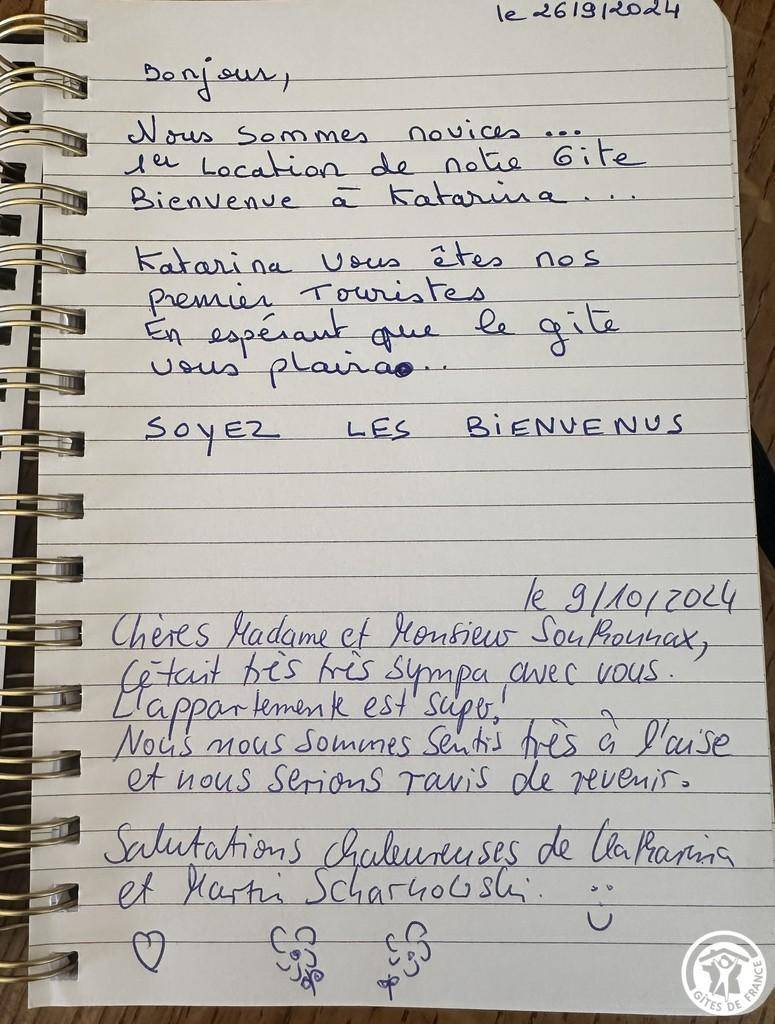 le 26/9/2024
Bonjour,
Nous sommes novices ...
1er Location de notre Gite
Bienvenue à Katarina ...
Katarina vous êtes nos
premier Touristes
En espérant que le gite
vous plaira...
SOYEZ LES BIENVENUS
le 9/10/2024
Chères Madame et Monsieur
C'était très très sympa avec vous.
L'appartemente est super!
Nous nous sommes sentis très à l'aise
et nous serions ravis de revenir.
Salutations chaleureuses de Katharina
et Martin
GÎTES DE FRANCE